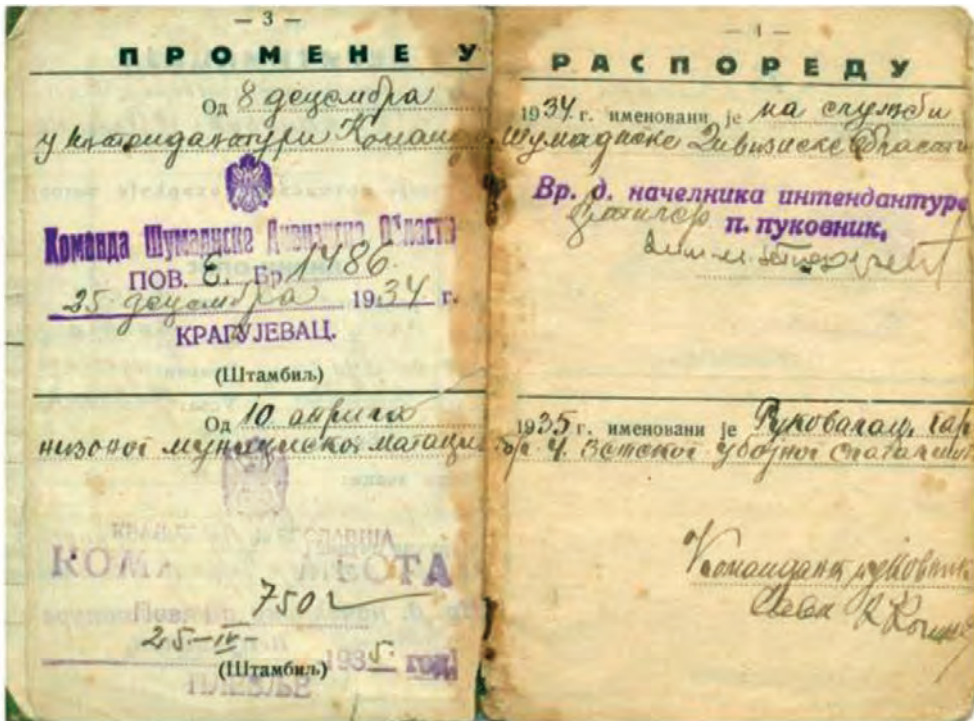 — 3 —
ПРОМЕНЕ У
Од 8 децембра
у интендантури Команде
Команда Шумадиске Дивизиске Области
ПОВ. Е. Бр 1486.
25 децембра 1934 г.
КРАГУЈЕВАЦ.
(Штамбиљ)
Од 10 априла
низоног муницискога магацина
КРАЉЕВИНА ЈУГОСЛАВИЈА
КОМАНДА МЕСТА
7502
25-IV- 1935 год.
(Штамбиљ)
ПЛЕВЉЕ
— 4 —
РАСПОРЕДУ
1934 г. именовани је на служби
Шумадиске Дивизиске Области
Вр. д. начелника интендантуре
п. пуковник,
1935 г. именовани је Руковалац гар
бр. 4. Зетског убојног слагалишта
Командант пуковник